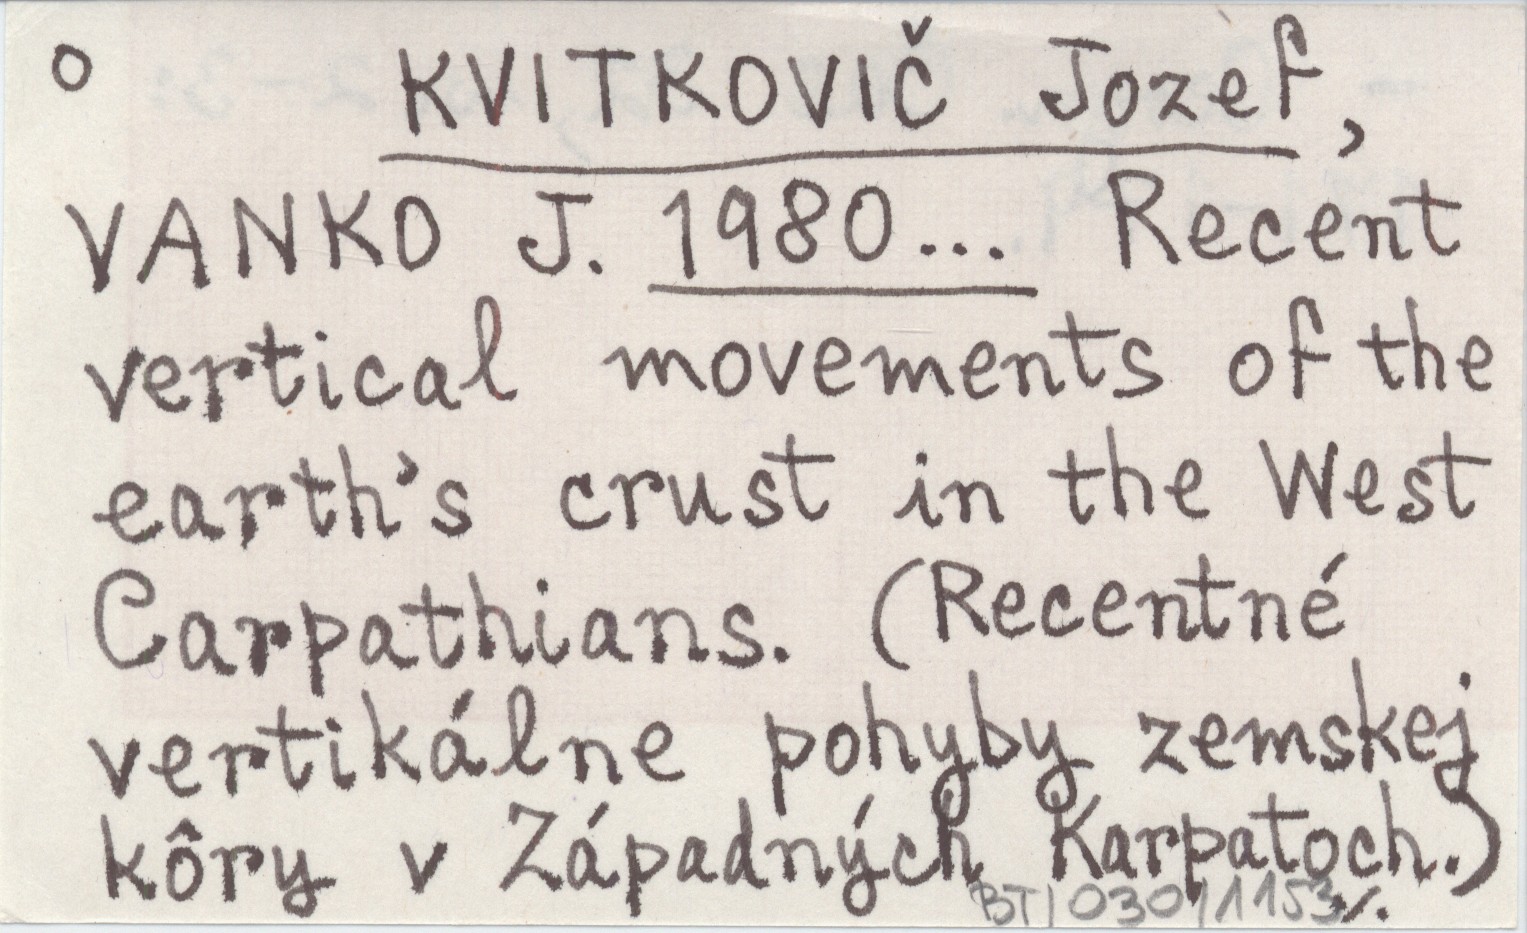 o KVITKOVIČ Jozef,
VANKO J. 1980... Recent
vertical movements of the
earth's crust in the West
Carpathians. (Recentné
vertikálne pohyby zemskej
kôry v Západných Karpatoch.)
BT/030/1153 ./.